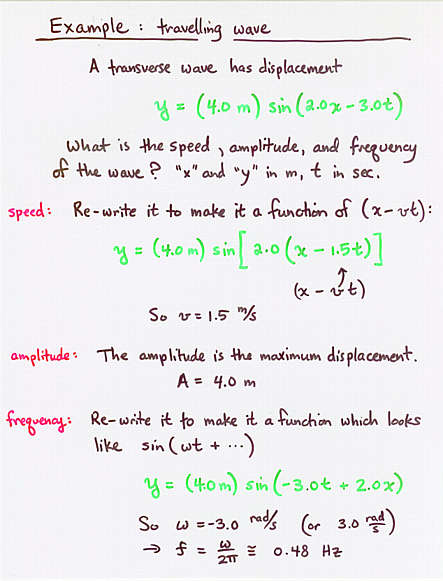 Example : travelling wave
A transverse wave has displacement
y = (4.0 m) sin (2.0x - 3.0t)
What is the speed, amplitude, and frequency
of the wave? "x" and "y" in m, t in sec.
speed: Re-write it to make it a function of (x - vt):
y = (4.0 m) sin [2.0 (x - 1.5t)]
(x - vt)
So v = 1.5 m/s
amplitude: The amplitude is the maximum displacement.
A = 4.0 m
frequency: Re-write it to make it a function which looks
like sin (ωt + ⋯)
y = (4.0 m) sin (-3.0t + 2.0x)
So ω = -3.0 rad/s (or 3.0 rad/s)
→ f = ω/2π ≅ 0.48 Hz